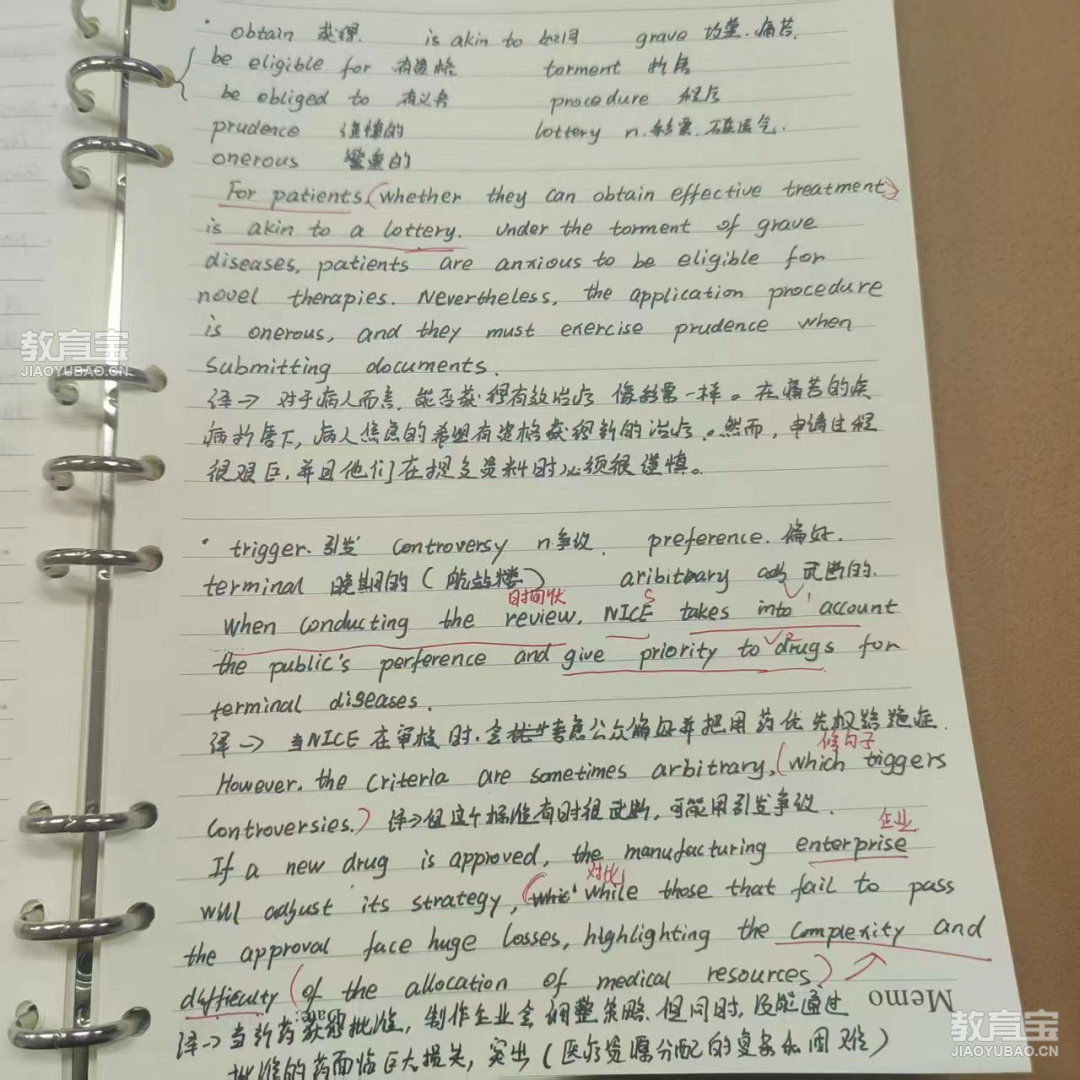 obtain 获得. is akin to 如同 grave 坟墓.痛苦.
be eligible for 有资格 torment 折磨
be obliged to 有义务 procedure 程序
prudence 谨慎的 lottery n.彩票.碰运气.
onerous 繁重的
For patients (whether they can obtain effective treatment)
is akin to a lottery. Under the torment of grave
diseases, patients are anxious to be eligible for
novel therapies. Nevertheless, the application procedure
is onerous, and they must exercise prudence when
submitting documents.
译→ 对于病人而言,能否获得有效治疗 像彩票一样。在痛苦的疾
病折磨下,病人焦虑的希望有资格获得新的治疗。然而,申请过程
很艰巨,并且他们在提交资料时必须很谨慎。
trigger.引发 controversy n争议. preference.偏好.
terminal 晚期的(航站楼) aribitrary adj 武断的.
时间状 S V
When conducting the review, NICE takes into account
the public's perference and give priority to drugs for
terminal diseases.
译→ 当NICE在审核时.会考虑公众偏好并把用药优先权给绝症.
修句子
However, the criteria are sometimes arbitrary, (which triggers
controversies.) 译→但这个标准有时很武断,可能用引发争议.
企业
If a new drug is approved, the manufacturing enterprise
对比
will adjust its strategy, (whic' while those that fail to pass
the approval face huge losses, highlighting the complexity and
difficulty (of the allocation of medical resources)
Memo
译→当新药获得批准,制作企业会调整策略.但同时,没能通过
批准的药面临巨大损失,突出(医疗资源分配的复杂和困难)
教育宝
JIAOYUBAO.CN
教育宝
JIAOYUBAO.CN